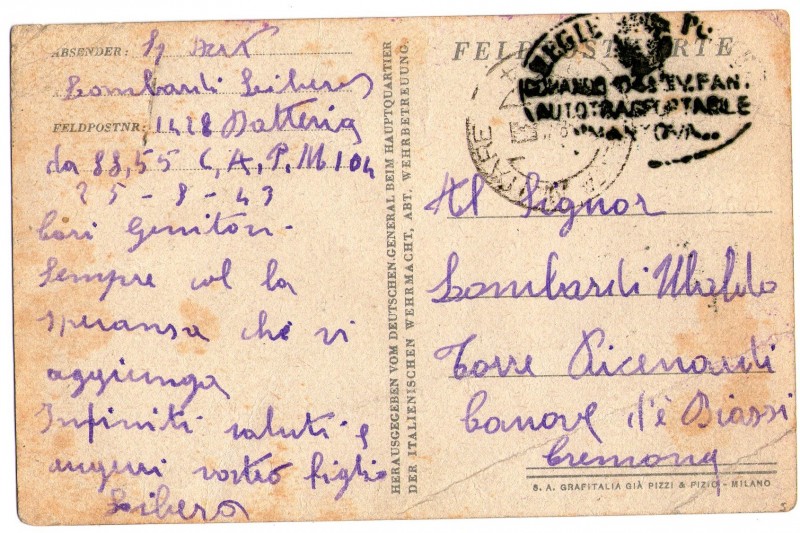 ABSENDER:
Lombardi Libero
FELDPOSTNR: 1428 Batteria
da 88,55 C,A,P,M 104
25-8-43
Cari Genitori
Sempre col la
speransa che vi
aggiunga
Infiniti saluti e
auguri vostro figlio
Libero
HERAUSGEGEBEN VOM DEUTSCHEN.GENERAL BEIM HAUPTQUARTIER
DER ITALIENISCHEN WEHRMACHT, ABT. WEHRBETREUUNG.
FELDPOSTKARTE
REGIE PO
COMANDO FAN.
AUTOTRASPORTABILE
MANTOVA
Al Signor
Lombardi Ubaldo
Torre Picenardi
Canove d'è Biassi
Cremona
S. A. GRAFITALIA GIÀ PIZZI & PIZIO - MILANO